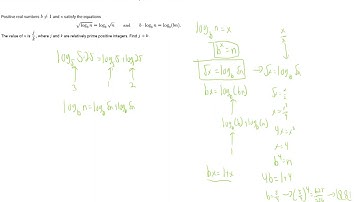 Positive real numbers b ≠ 1 and n satisfy the equations
√log_b n = log_b √n and b · log_b n = log_b(bn).
The value of n is j/k, where j and k are relatively prime positive integers. Find j + k
log_5 5·25 = log_5 5 + log_5 25
3 1 2
log_b n = log_b √n + log_b √n
log_b n = x
b^x = n
√x = log_b √n
bx = log_b (bn)
log_b (b) + log_b (n)
1
bx = 1+x
x
→ √x = log_b √n
√x = x/2
x = x²/4
4x = x²
x = 4
b⁴ = n
4b = 1+4
b = 5/4 → (5/4)⁴ = 625/256 → 881